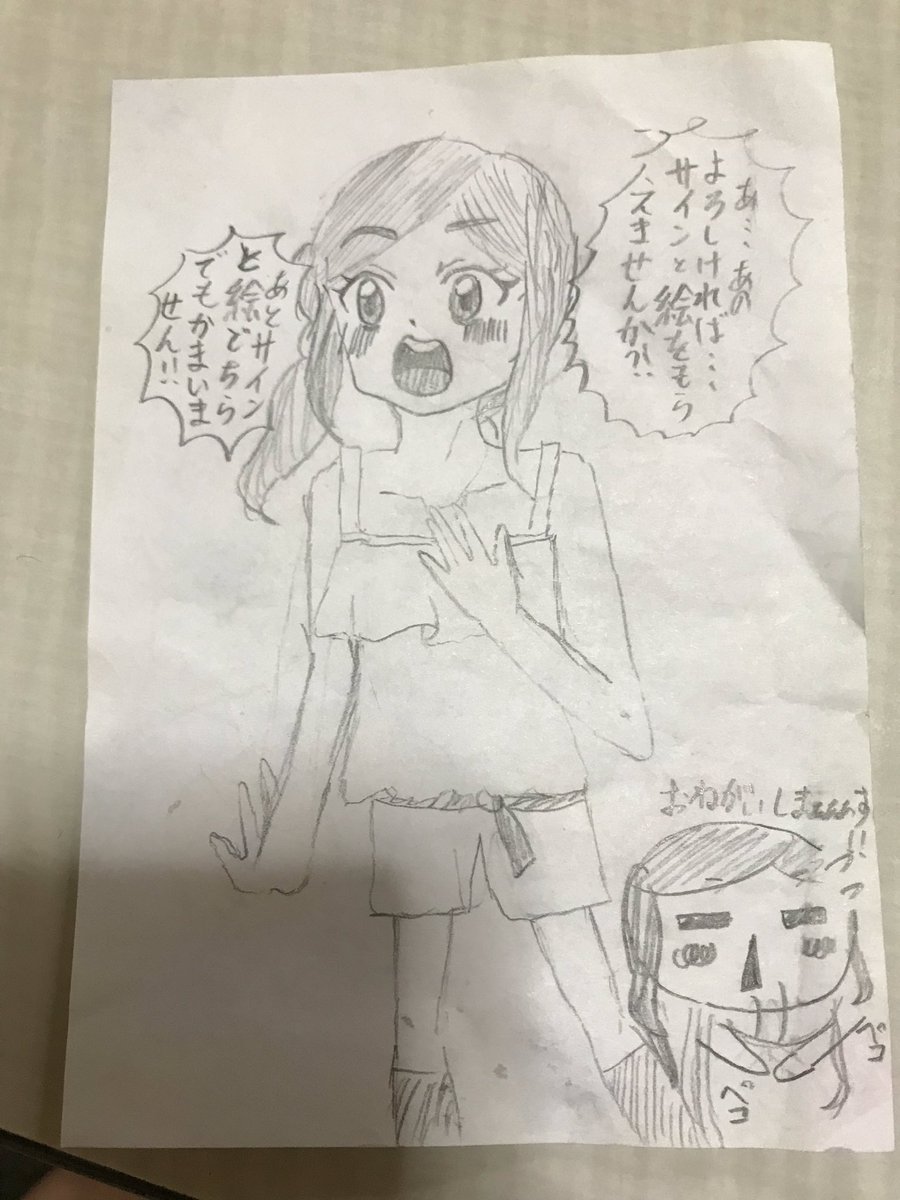 あ…あの
よろしければ…
サインと絵をもら
えませんか?!
あとサイン
と絵どちら
でもかまいま
せん!!
おねがいしまぁぁぁす
ペコ
ペコ